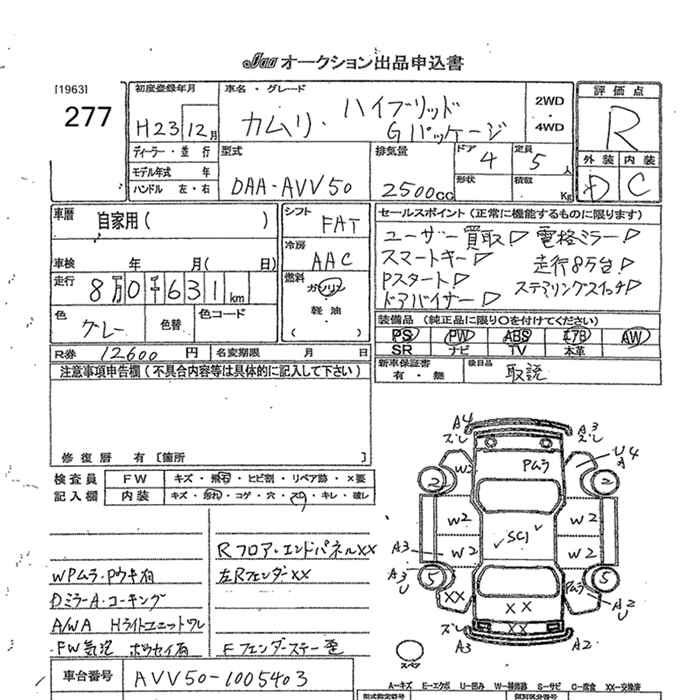 Jaa オークション出品申込書
[1963]
277
初度登録年月
H23 12月
車名・グレード
カムリ・ハイブリッド
Gパッケージ
2WD
・
4WD
評価点
R
外装 内装
D C
ディーラー・並行
モデル年式 年
ハンドル 左・右
型式
DAA-AVV50
排気量
2500cc
ドア
4
形状
定員
5人
積載
Kg
車歴
自家用( )
シフト
FAT
冷房
AAC
車検 年 月( 日)
走行
8万0千631km
燃料
ガソリン
・
軽油
( )
色
グレー
色替
色コード
R券 12600円
名変期限 月 日
セールスポイント(正常に機能するものに限ります)
ユーザー買取▷ 電格ミラー▷
スマートキー▷ 走行8万台!
Pスタート▷ ステアリングスイッチ▷
ドアバイザー▷
装備品(純正品に限り〇を付けてください)
PS PW ABS エアB AW
SR ナビ TV 本革
新車保証書
有・無
後日品
取説
注意事項申告欄(不具合内容等は具体的に記入して下さい)
修復歴 有〔箇所 〕
検査員
記入欄
FW キズ・飛石・ヒビ割・リペア跡・×要
内装 キズ・汚れ・コゲ・穴・スレ・キレ・破レ
Rフロア・エンドパネルXX
WPムラ・Pウキ有
左RフェンダーXX
DミラーA・コーキング
A/WA Hライトユニットワレ
FW気泡 ホウセイ有
Fフェンダーステー歪
車台番号
AVV50-1005403
A4
ズレ
A3
ズレ
U4
A
W2
Pムラ
2
2
W2
W2
SC1
A3
W2
W2
A3
U
5
5
Pムラ
XX
XX
A2
U
ズレ
XX
A2
スペア
A=キズ E=エクボ U=凹み W=補修跡 S=サビ C=腐食 XX=交換済
型式指定番号
類別区分番号